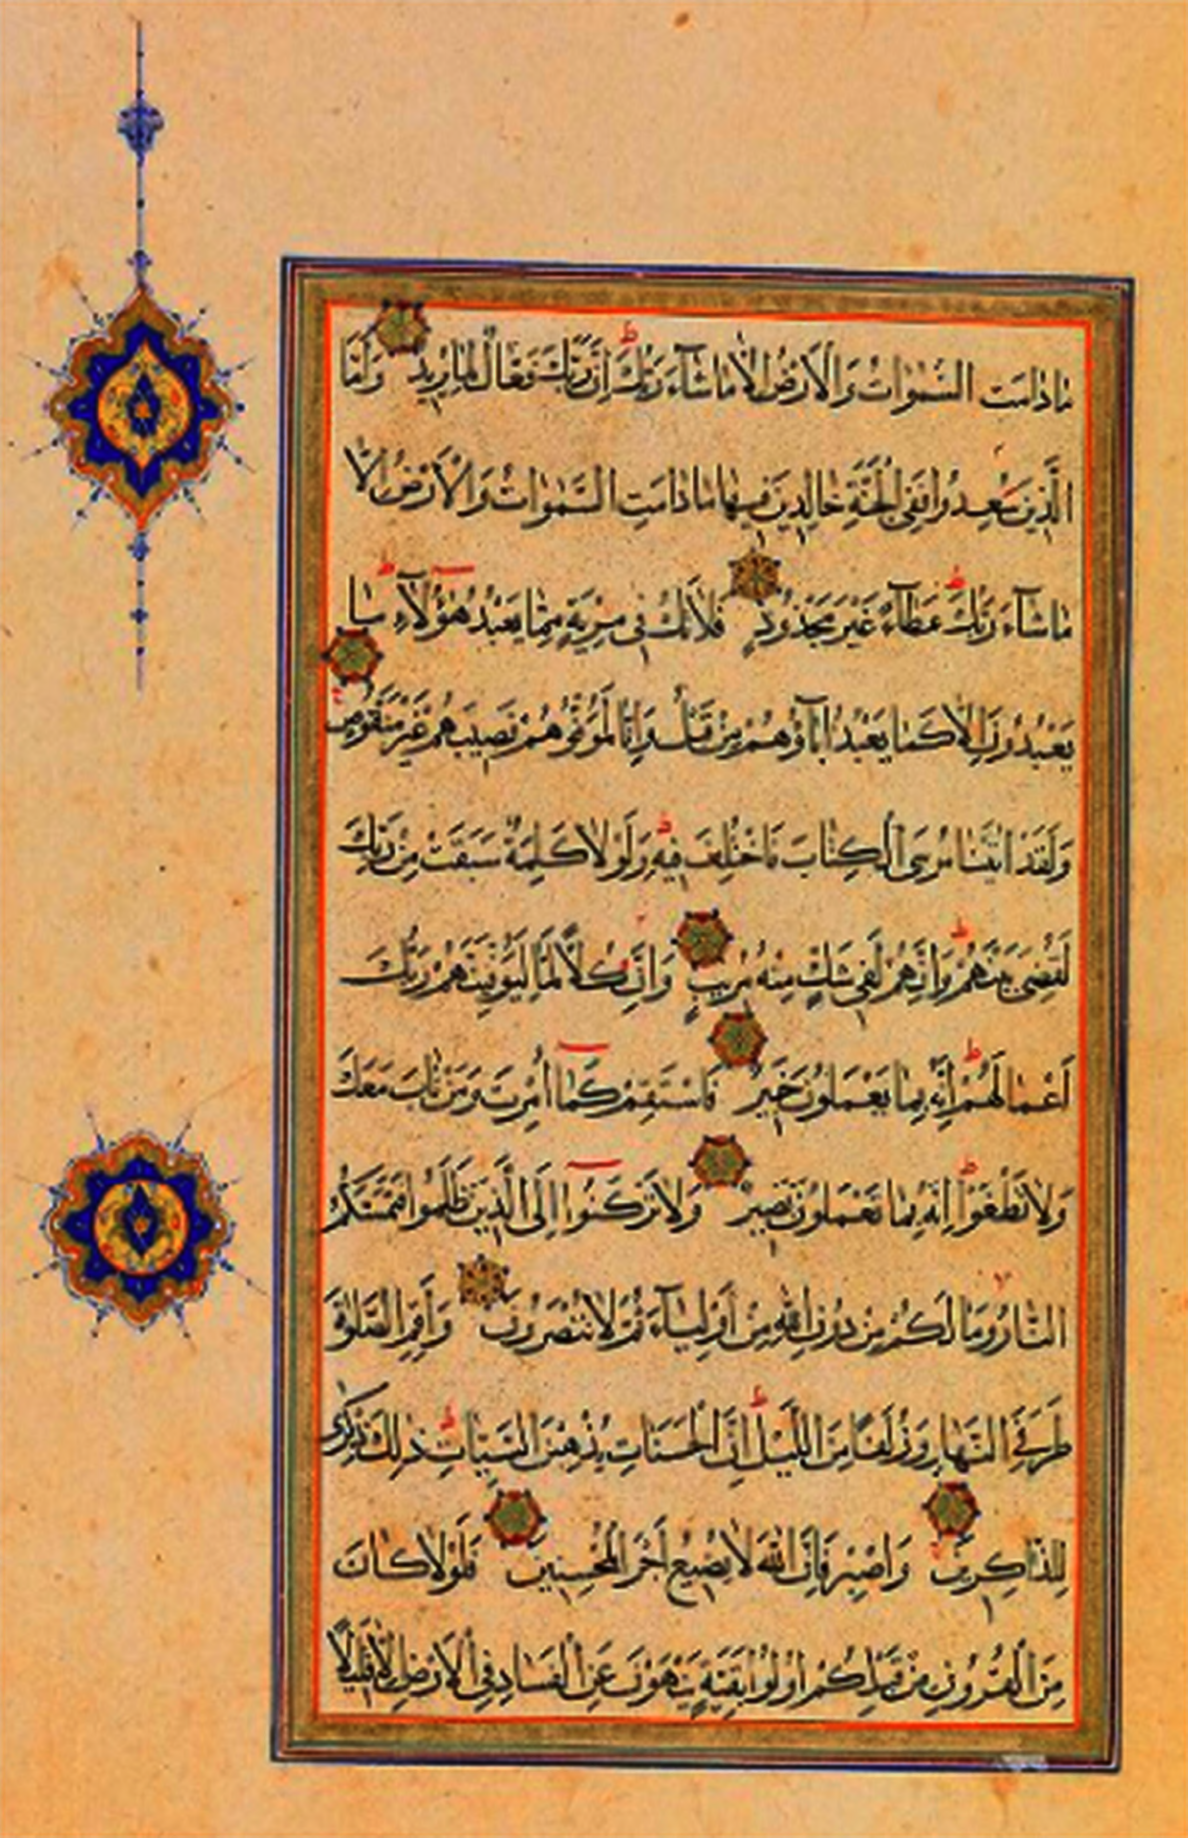 مَا دَامَتِ السَّمٰوَاتُ وَالْاَرْضُ اِلَّا مَا شَآءَ رَبُّكَ ط اِنَّ رَبَّكَ فَعَّالٌ لِمَا يُرِيدُ وَاَمَّا
الَّذِينَ سُعِدُوا فَفِي الْجَنَّةِ خَالِدِينَ فِيهَا مَا دَامَتِ السَّمٰوَاتُ وَالْاَرْضُ اِلَّا
مَا شَآءَ رَبُّكَ ط عَطَآءً غَيْرَ مَجْذُوذٍ فَلَا تَكُ فِي مِرْيَةٍ مِمَّا يَعْبُدُ هٰؤُلَآءِ ط مَا
يَعْبُدُونَ اِلَّا كَمَا يَعْبُدُ اٰبَاؤُهُمْ مِنْ قَبْلُ وَاِنَّا لَمُوَفُّوهُمْ نَصِيبَهُمْ غَيْرَ مَنْقُوصٍ
وَلَقَدْ اٰتَيْنَا مُوسَى الْكِتَابَ فَاخْتُلِفَ فِيهِ ط وَلَوْلَا كَلِمَةٌ سَبَقَتْ مِنْ رَبِّكَ
لَقُضِيَ بَيْنَهُمْ ط وَاِنَّهُمْ لَفِي شَكٍّ مِنْهُ مُرِيبٍ وَاِنَّ كُلًّا لَمَّا لَيُوَفِّيَنَّهُمْ رَبُّكَ
اَعْمَالَهُمْ ط اِنَّهُ بِمَا يَعْمَلُونَ خَبِيرٌ فَاسْتَقِمْ كَمَآ اُمِرْتَ وَمَنْ تَابَ مَعَكَ
وَلَا تَطْغَوْا ط اِنَّهُ بِمَا تَعْمَلُونَ بَصِيرٌ وَلَا تَرْكَنُوا اِلَى الَّذِينَ ظَلَمُوا فَتَمَسَّكُمُ
النَّارُ وَمَا لَكُمْ مِنْ دُونِ اللّٰهِ مِنْ اَوْلِيَآءَ ثُمَّ لَا تُنْصَرُونَ وَاَقِمِ الصَّلٰوةَ
طَرَفَيِ النَّهَارِ وَزُلَفًا مِنَ اللَّيْلِ ط اِنَّ الْحَسَنَاتِ يُذْهِبْنَ السَّيِّاٰتِ ط ذٰلِكَ ذِكْرٰى
لِلذَّاكِرِينَ وَاصْبِرْ فَاِنَّ اللّٰهَ لَا يُضِيعُ اَجْرَ الْمُحْسِنِينَ فَلَوْلَا كَانَ
مِنَ الْقُرُونِ مِنْ قَبْلِكُمْ اُولُوا بَقِيَّةٍ يَنْهَوْنَ عَنِ الْفَسَادِ فِي الْاَرْضِ اِلَّا قَلِيلًا